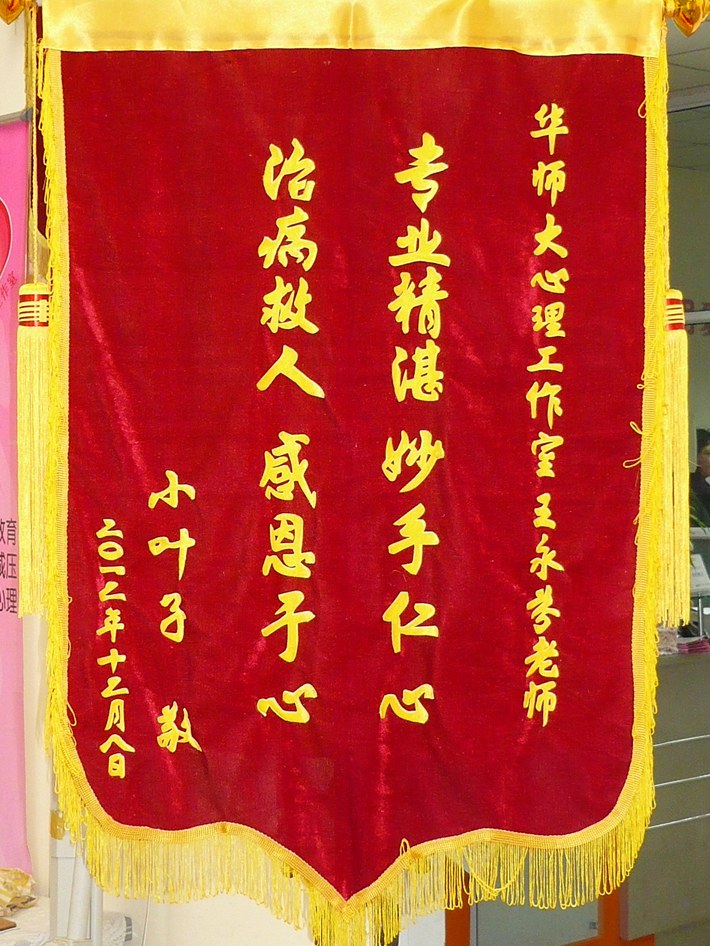 华师大心理工作室王永芬老师
专业精湛 妙手仁心
治病救人 感恩于心
小叶子 敬
二〇一二年十二月八日
教育
减压
心理